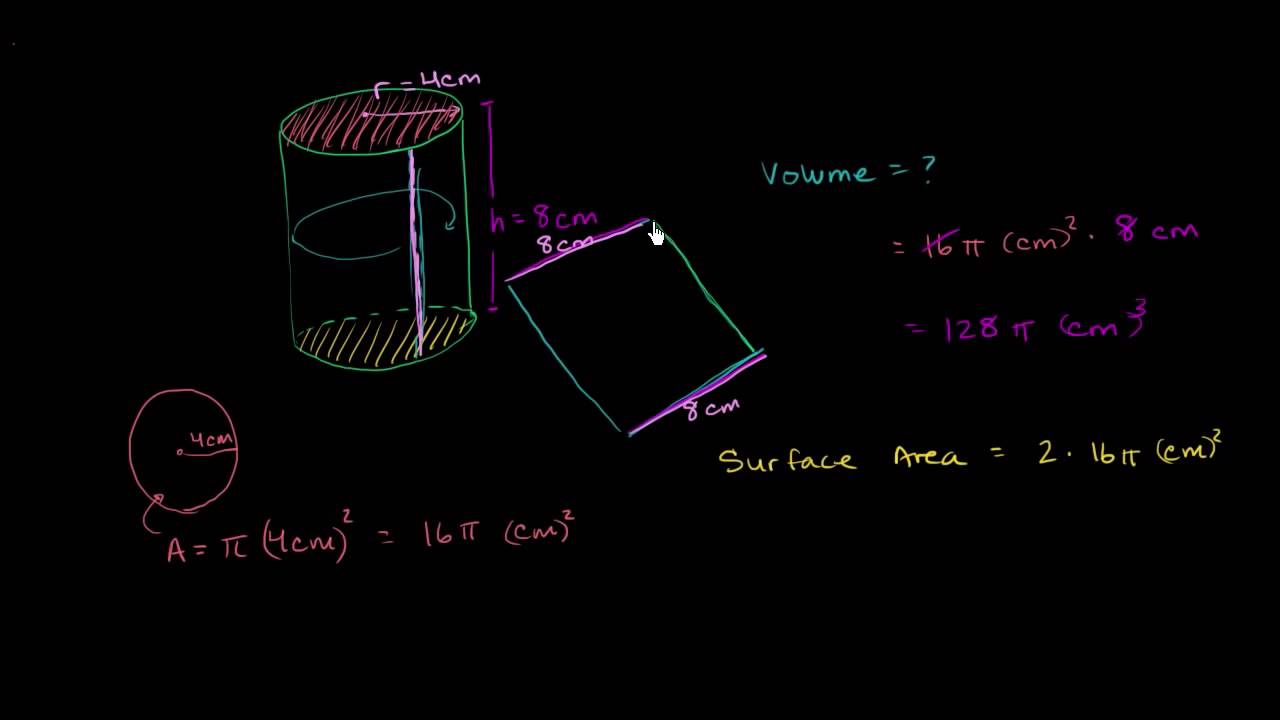 r = 4cm
h = 8cm
8cm
8cm
Volume = ?
= 16π (cm)² · 8 cm
= 128π (cm)³
4cm
A = π (4cm)² = 16π (cm)²
Surface Area = 2 · 16π (cm)²